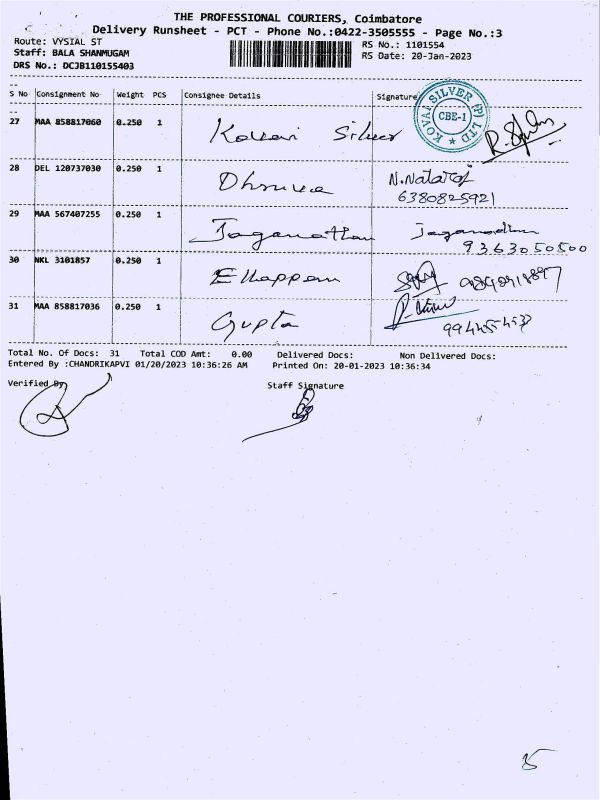 THE PROFESSIONAL COURIERS, Coimbatore
Delivery Runsheet - PCT - Phone No.:0422-3505555 - Page No.:3
Route: VYSIAL ST
RS No.: 1101554
Staff: BALA SHANMUGAM
RS Date: 20-Jan-2023
DRS No.: DCJB110155403
S No Consignment No Weight PCS Consignee Details Signature
KOVAI SILVER (P) LTD
CBE-1
27 MAA 858817060 0.250 1 Kovai Silver
28 DEL 120737030 0.250 1 Dhruva N.Nataraj
6380825921
29 MAA 567407255 0.250 1 Jaganathan
9363050500
30 NKL 3101857 0.250 1 Ellappan
31 MAA 858817036 0.250 1 Gupta
Total No. Of Docs: 31 Total COD Amt: 0.00 Delivered Docs: Non Delivered Docs:
Entered By :CHANDRIKAPVI 01/20/2023 10:36:26 AM Printed On: 20-01-2023 10:36:34
Verified By Staff Signature